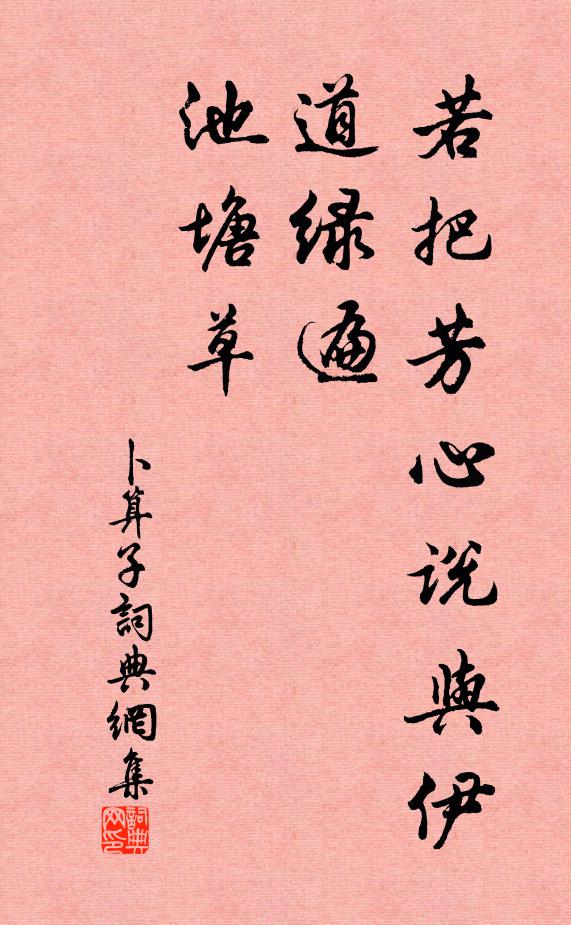 若把芳心説與伊
道緑遍
池塘草
卜算子詞典網集
詞典
网印